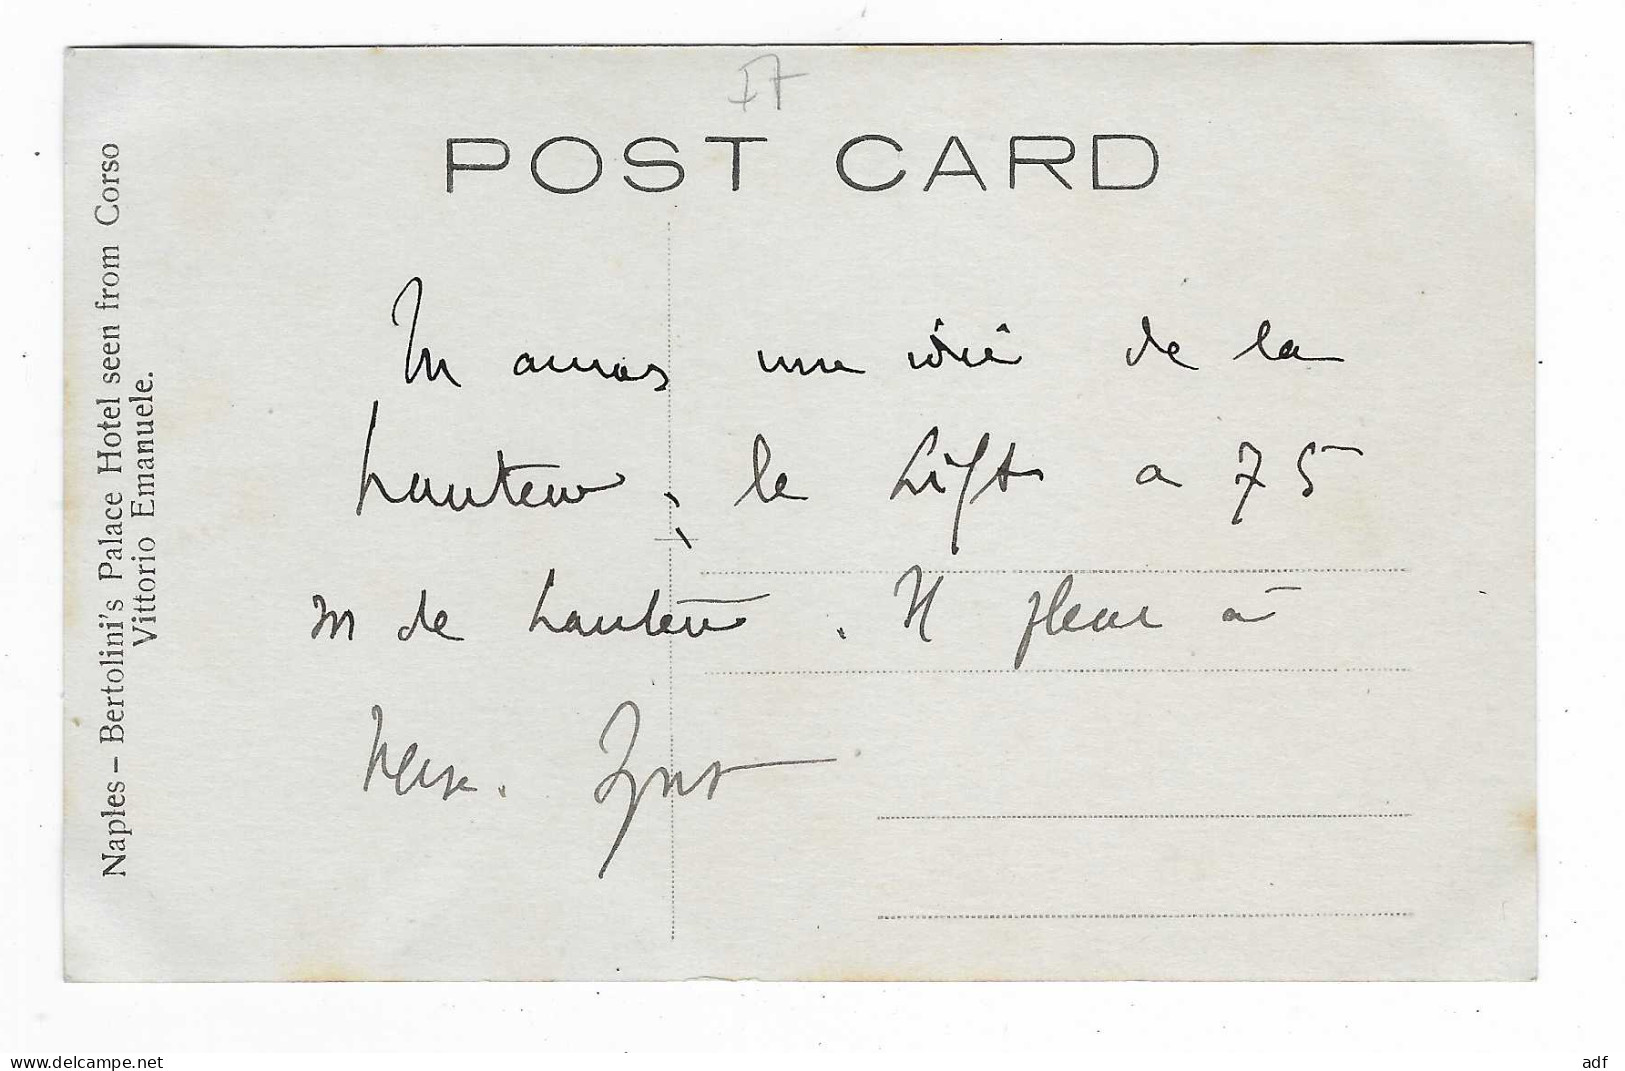 IT
POST CARD
Naples – Bertolini's Palace Hotel seen from Corso
Vittorio Emanuele.
Tu auras une idée de la
hauteur ; le Lift a 75
m de hauteur. Il pleut à
verse.
https://www.delcampe.net
adf